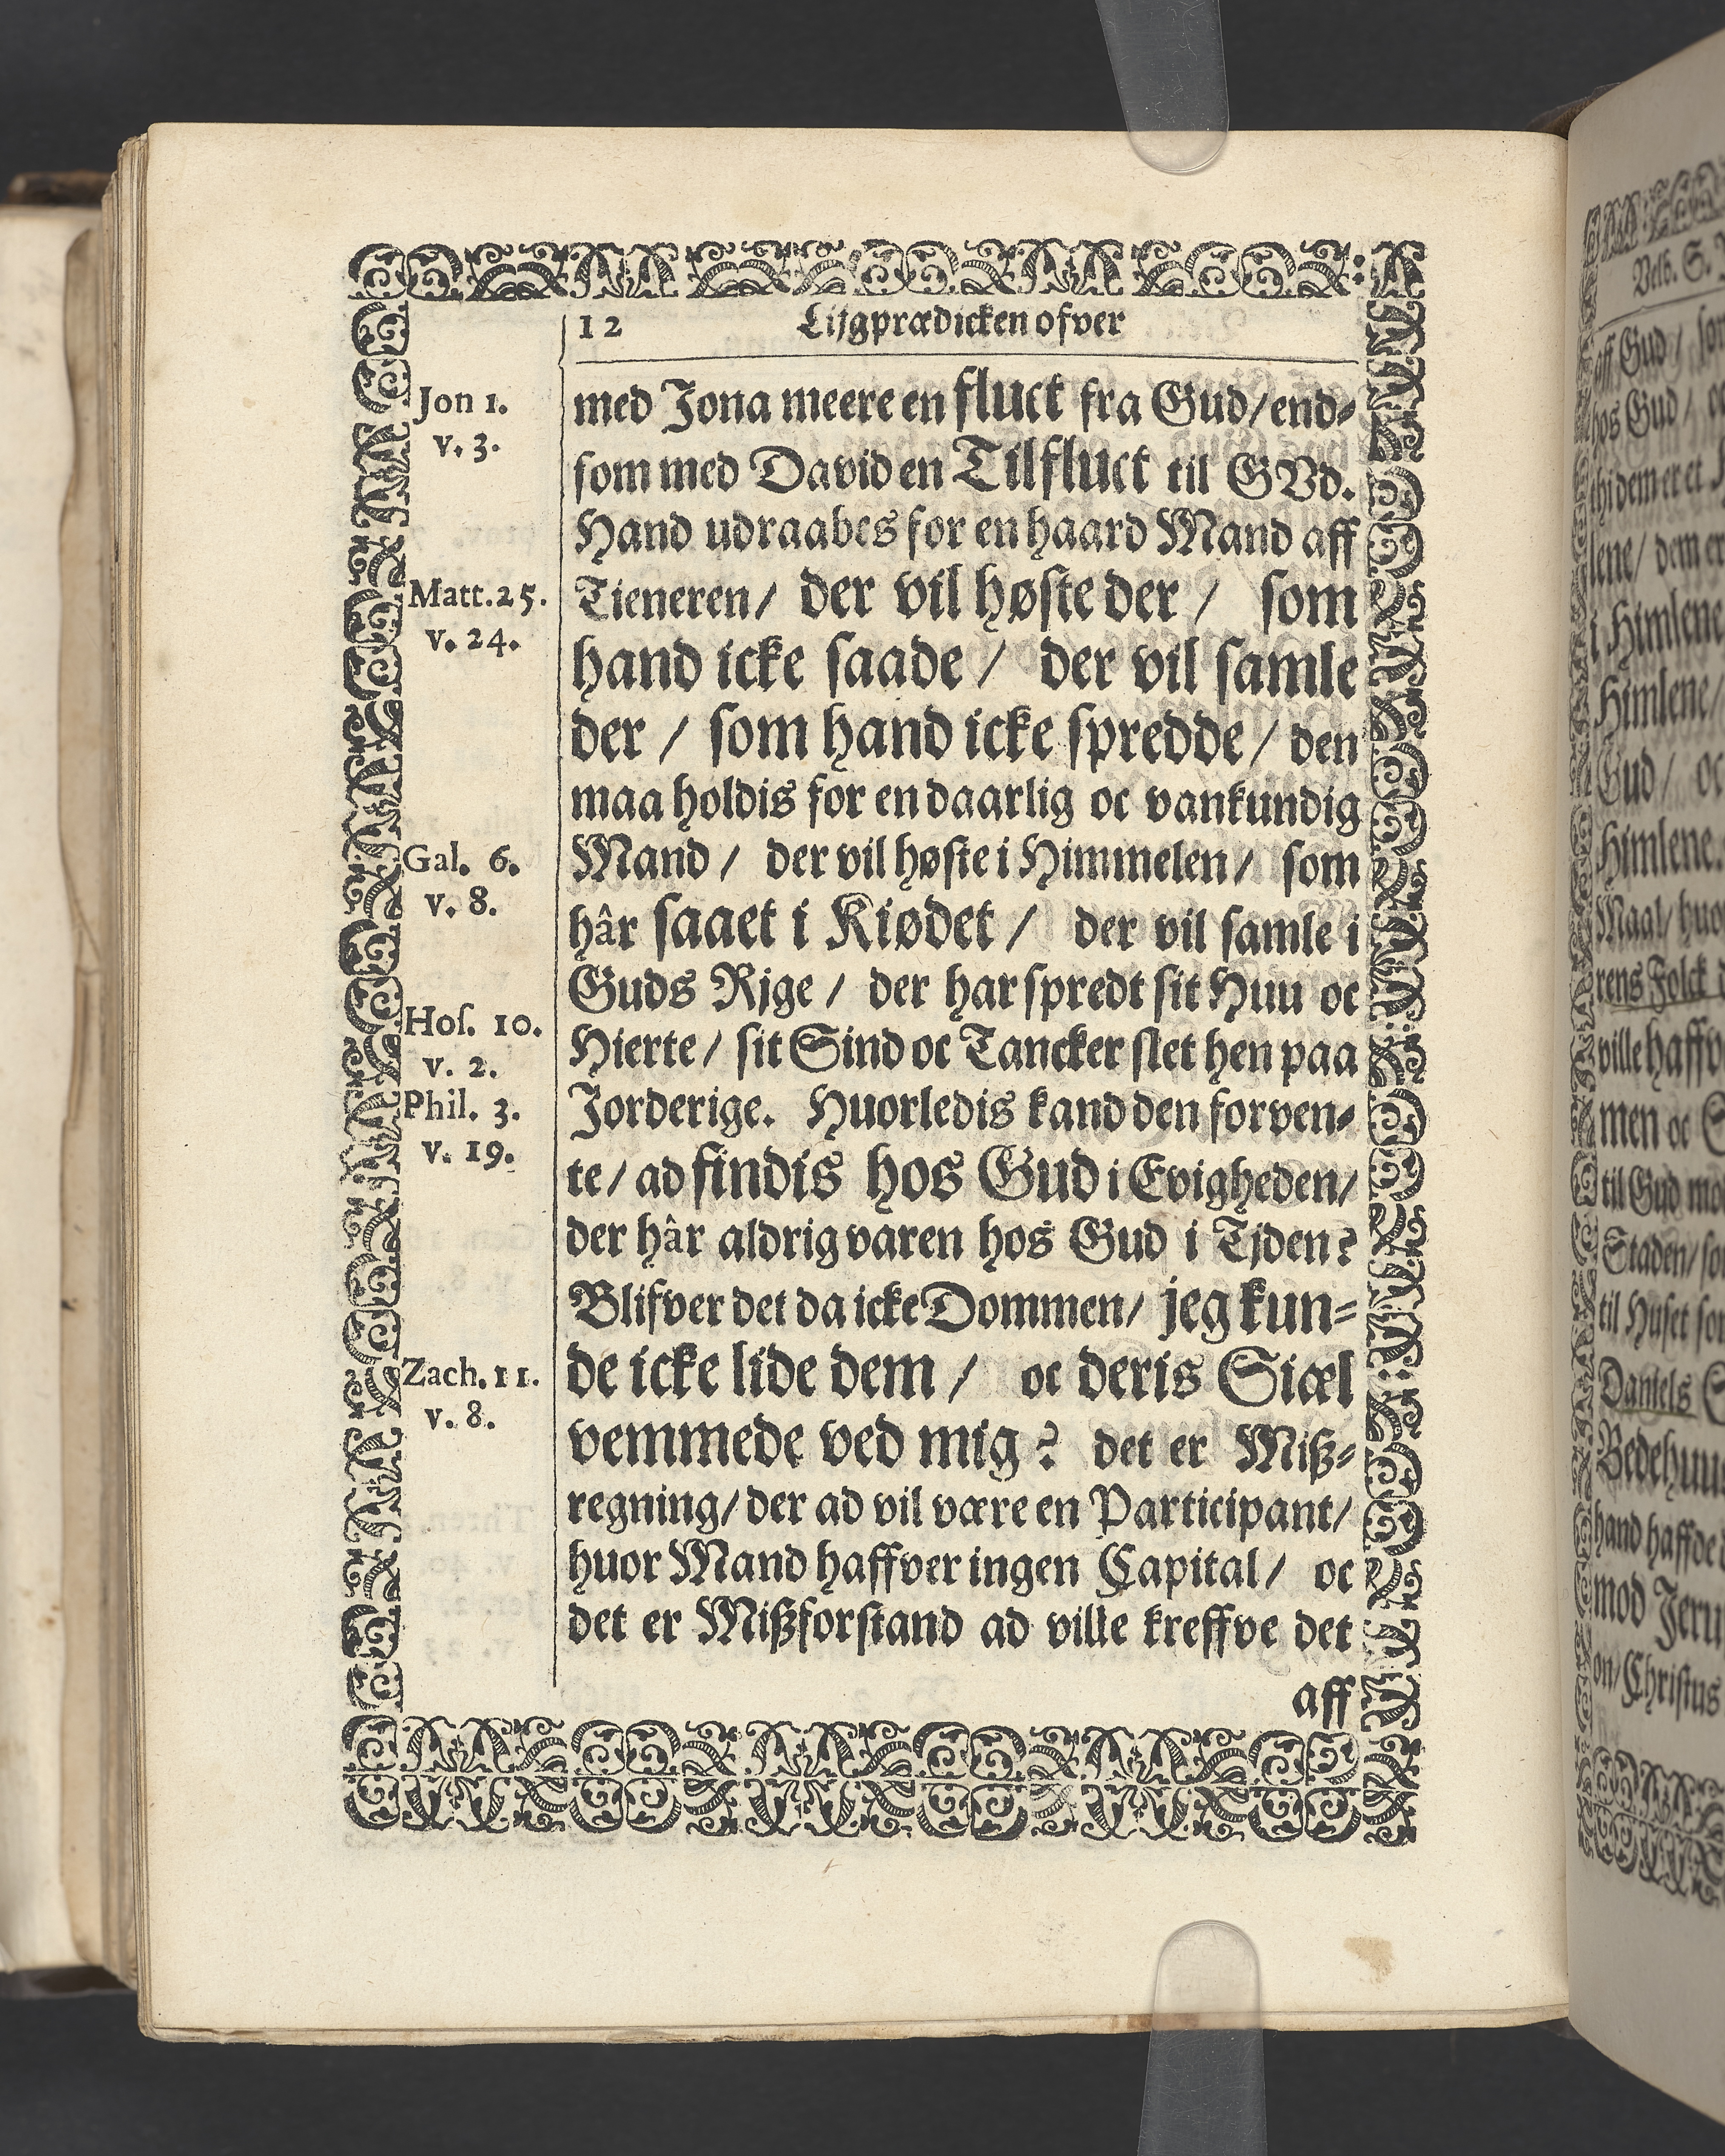 12 Lijgprædicken ofver
Jon 1.
v. 3.
Matt. 25.
v. 24.
Gal. 6.
v. 8.
Hoſ. 10.
v. 2.
Phil. 3.
v. 19.
Zach. 11.
v. 8.
med Jona meere en fluct fra Gud/ end⸗
ſom med David en Tilfluct til GVd.
Hand udraabes for en haard Mand aff
Tieneren/ der vil høſte der/ ſom
hand icke ſaade/ der vil ſamle
der/ ſom hand icke ſpredde/ den
maa holdis for en daarlig oc vankundig
Mand/ der vil høſte i Himmelen/ ſom
hâr ſaaet i Kiødet/ der vil ſamle i
Guds Rige/ der har ſpredt ſit Huu oc
Hierte/ ſit Sind oc Tancker ſlet hen paa
Jorderige. Huorledis kand den forven⸗
te/ ad findis hos Gud i Evigheden/
der hâr aldrig varen hos Gud i Tjden?
Blifver det da icke Dommen/ jeg kun⸗
de icke lide dem/ oc deris Siæl
vemmede ved mig? det er Miß⸗
regning/ der ad vil være en Participant/
huor Mand haffver ingen Capital/ oc
det er Mißforſtand ad ville kreffve det
aff
Velb. S.
aff Gud/
hos Gud/
thi dem er et
dem
i Himlene
Himlene/
Gud/ oc
Himlene.
Maal/
rens Folck
ville
men oc
til Gud
Staden/
til Huſet
Daniels
hand haffde
mod
Chriſtus